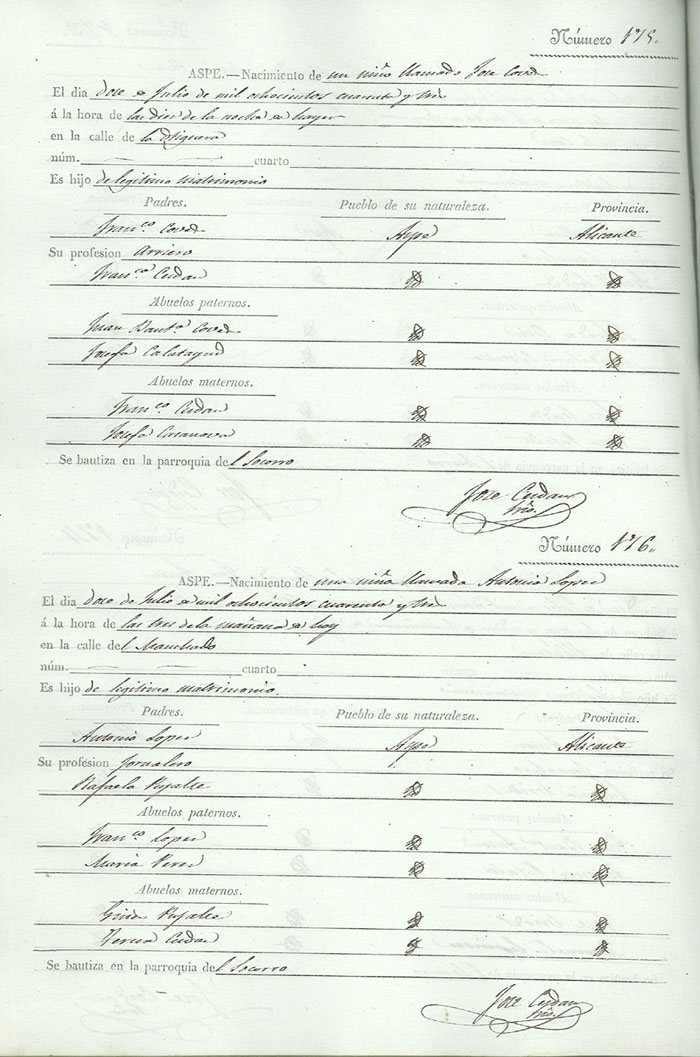 Número 175.
ASPE.—Nacimiento de un niño llamado Jose Coved
El dia doce de Julio de mil ochocientos cuarenta y tres
á la hora de las diez de la noche de hayer
en la calle de la
núm. cuarto
Es hijo de legitimo matrimonio
Padres. Pueblo de su naturaleza. Provincia.
Franco. Coved Aspe Alicante
Su profesion Arriero
Franca. Cerdan
Abuelos paternos.
Juan Bauta. Coved
Josefa Calatayud
Abuelos maternos.
Franco. Cerdan
Josefa Casanova
Se bautiza en la parroquia del Socorro
Jose Cerdan
Srio.
Número 176.
ASPE.—Nacimiento de una niña llamada Antonia Lopez
El dia doce de Julio de mil ochocientos cuarenta y tres
á la hora de las tres de la mañana de hoy
en la calle del Manchado
núm. cuarto
Es hijo de legitimo matrimonio
Padres. Pueblo de su naturaleza. Provincia.
Antonio Lopez Aspe Alicante
Su profesion Jornalero
Rafaela
Abuelos paternos.
Franco. Lopez
Maria Perez
Abuelos maternos.
Teresa Cerdan
Se bautiza en la parroquia del Socorro
Jose Cerdan
Srio.